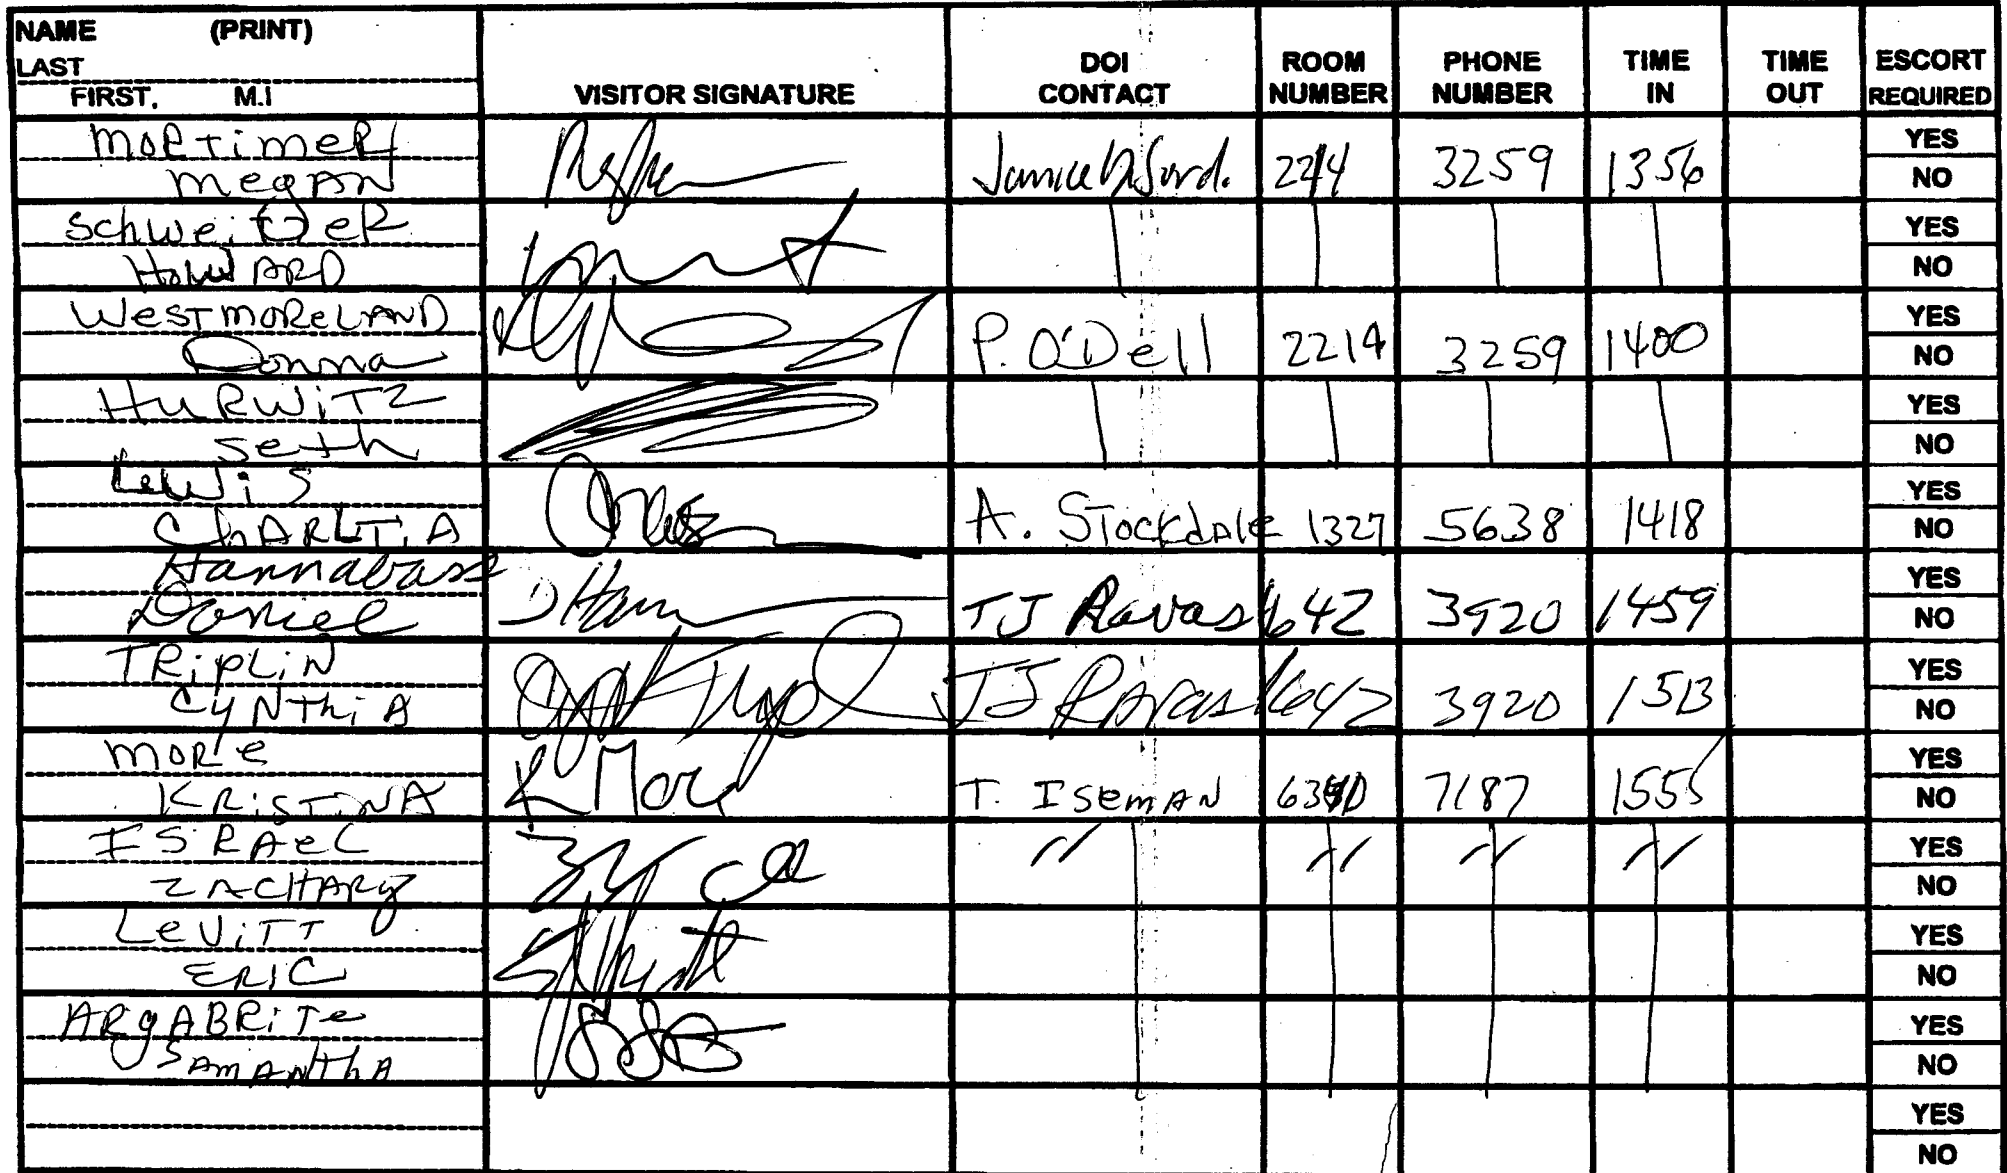 NAME (PRINT)
LAST
FIRST, M.I
VISITOR SIGNATURE
DOI CONTACT
ROOM NUMBER
PHONE NUMBER
TIME IN
TIME OUT
ESCORT REQUIRED
MORTIMER
MEGAN
Janice 3259 1356
YES
NO
SCHWEITZER
HOWARD
YES
NO
WESTMORELAND
Donna
P. O'Dell 2214 3259 1400
YES
NO
HURWITZ
Seth
YES
NO
Lewis
CHARLITIA
A. Stockdale 1327 5638 1418
YES
NO
Hannabass
Daniel
D Hann
TJ Ravas 1642 3920 1459
YES
NO
TRIPLIN
CYNTHIA
TJ Ravas 1642 3920 1513
YES
NO
MORE
KRISTINA
K More
T. ISEMAN 7187 1555
YES
NO
ISRAEL
ZACHARY
" " " "
YES
NO
LEVITT
ERIC
YES
NO
ARGABRITE
SAMANTHA
YES
NO
YES
NO